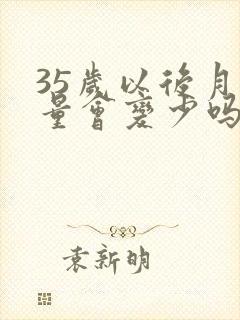 35歲以後月
量會變少嗎
袁新明